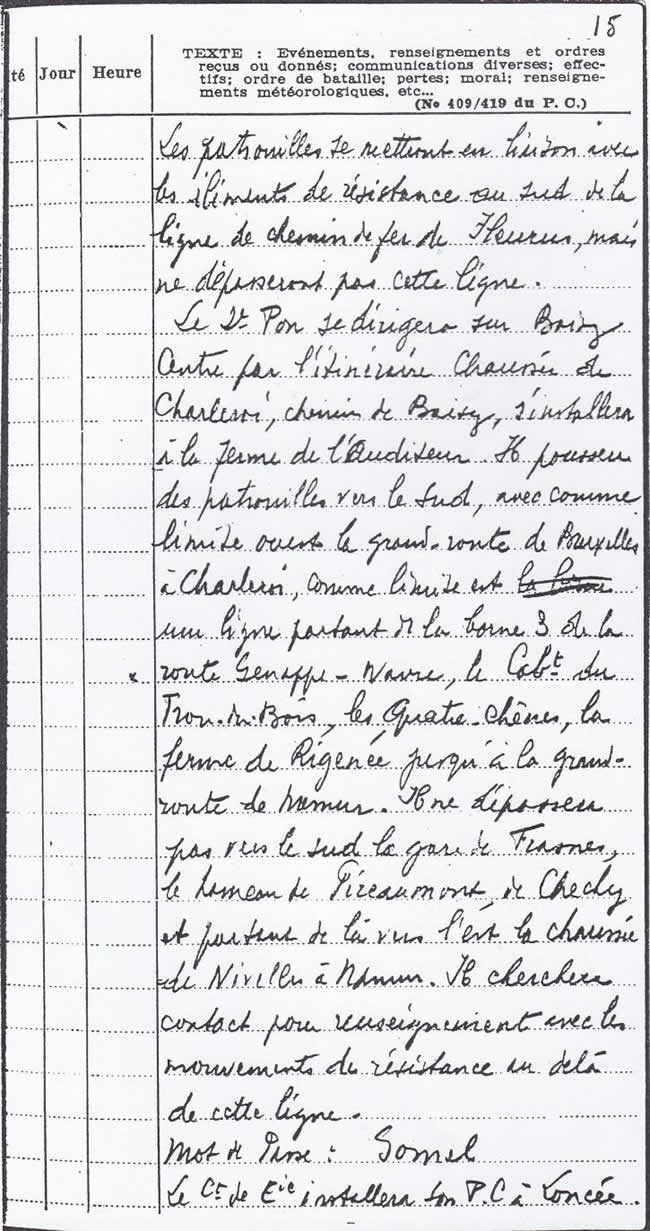 15
té Jour Heure
TEXTE : Evénements, renseignements et ordres
reçus ou donnés; communications diverses; effec-
tifs; ordre de bataille; pertes; moral; renseigne-
ments météorologiques, etc...
(No 409/419 du P. C.)
Les patrouilles se mettront en liaison avec
les éléments de résistance au sud de la
ligne de chemin de fer de Fleurus, mais
ne dépasseront pas cette ligne.
Le 2e Pon se dirigera sur Baisy
Centre par l'itinéraire Chaussée de
Charleroi, chemin de Baisy, s'installera
à la ferme de l'Auditeur. Il poussera
des patrouilles vers le sud, avec comme
limite ouest la grand-route de Bruxelles
à Charleroi, comme limite est
une ligne partant de la borne 3 de la
route Genappe - Wavre, le Cabt du
Trou-du-Bois, les Quatre-chênes, la
ferme de Rigenée jusqu'à la grand-
route de Namur. Il ne dépassera
pas vers le sud la gare de Frasnes,
le hameau de Pireaumont, de Chechy
et partant de là vers l'est la chaussée
de Nivelles à Namur. Il cherchera
contact pour renseignement avec les
mouvements de résistance au delà
de cette ligne.
Mot de Passe :
Le Ct de Eie installera son P.C à Loncée.